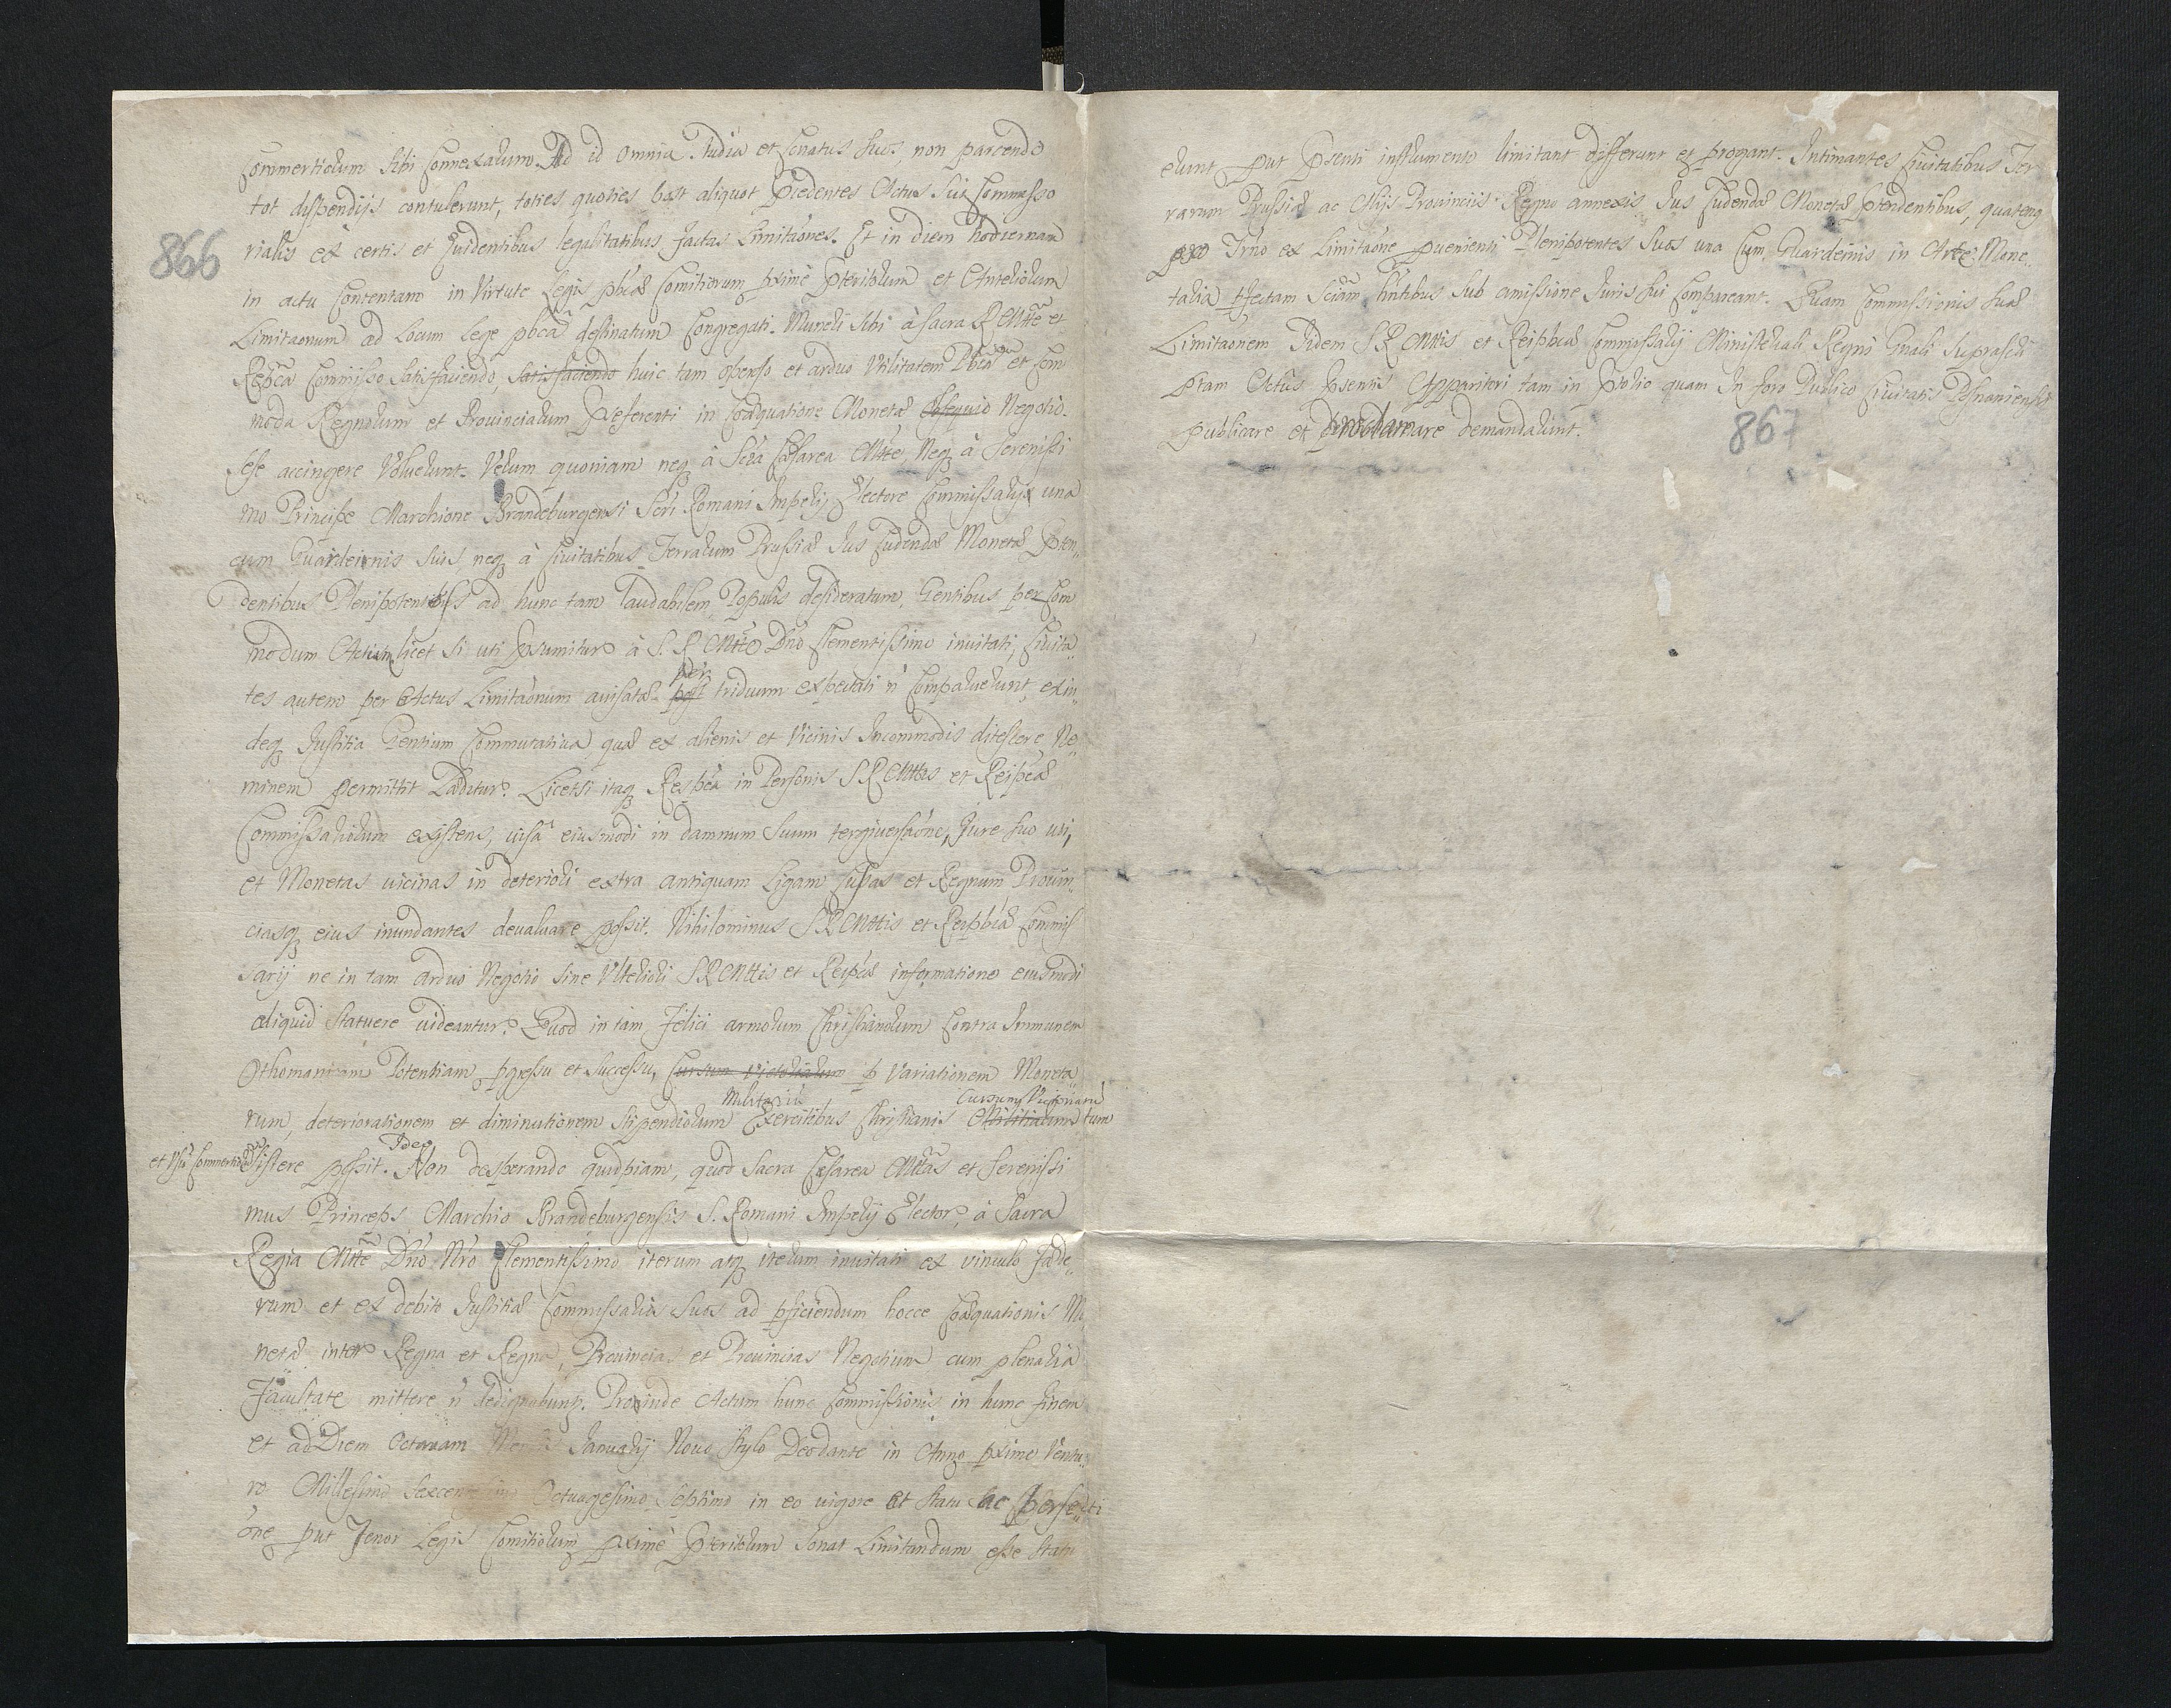 Commertiorum sibi Connexarum. Ad id omnia Studia et Conatus suos, non parcendo
tot dispendijs contulerunt, toties quoties post aliquot Precedentes Actus sui Commisso
866
rialis ex certis et Evidentibus legalitatibus factas Limitaones. Et in diem hodiernam
in actu Contentam in Virtute Legis pbcæ Comitiorum pxime Pteritorum et Anteriorum
Limitaonum ad Locum lege pbca destinatum Congregati. Muneri sibi à Sacra R Mtte et
Repca Commisso Satisfaciendo, Satisfaciendo huic tam operoso et arduo Utilitatem Pbcam et Com
moda Regnorum et Provinciarum Præferenti in Coæquatione Monetæ Obsequio Negotio
sese accingere Voluerunt. Verum quoniam neq à Scra Cæsarea Mtte, Neq à Serenissi
mo Principe Marchione Brandeburgensi Scri Romani Imperij Electore Commissarijs una
cum Guardeinis suis neq à Civitatibus Terrarum Prussiæ Jus Cudendæ Monetæ Pten„
dentibus Plenipotentibus ad hunc tam laudabilem Populis desideratum, Gentibus per Com
modum Actum licet si uti Psumitur à S. R Mtte Dno Clementissimo invitati, Civita„
tes autem per Actus Limitaonum avisatæ post
per
triduum expectati n Comparuerunt, exin„
deq Justitia Gentium Commutativa quæ ex alienis et Vicinis Incommodis ditescere Ne„
minem permittit Læditur. Licetsi itaq Respca in Personis S R Mttis et Reipcæ
Commissariorum existens, visa eiusmodi in damnum suum tergiversaone, Jure suo uti,
et Monetas vicinas in deteriori extra antiquam Ligam Cusas et Regnum Provin„
ciasq eius inundantes devaluare possit. Nihilominus S R Mttis et Reipbcæ Commis
sarij ne in tam arduo Negotio sine Ulteriori S R Mttis et Reipcæ informatione eiusmodi
aliquid statuere videantur. Quod in tam Felici armorum Christianorum Contra Immanem
Othomanicam Potentiam pgressu et successu, Cursum Victoriarum p Variationem Moneta
rum, deteriorationem et diminutionem Stipendiorum
Militariu
Exercitibus Christianis Militiarum
Cursum Victoriaru
tum
et Usu Commertioru
sistere possit.
Ideo
Non desperando quidpiam, quod Sacra Cæsarea Mttas et Serenissi
mus Princeps, Marchio Brandeburgensis S. Romani Imperij Elector, à Sacra
Regia Mtte Dno Nro Clementissimo iterum atq iterum invitati ex vinculo Fæde„
rum et ex debito Justitiæ Commissarios suos ad pficiendum hocce Coæquationis Mo„
netæ inter Regna et Regna, Provincias et Provincias Negotium cum plenaria
Facultate mittere n dedignabunt. Proinde Actum hunc Commissionis in hunc finem
et ad Diem Octavam Mensis Januarij Novo Stylo Deodante in Anno pximè Ventu„
ro Millesimo Sexcentesimo Octuagesimo Septimo in eo vigore et statu ac perfecti
one put Tenor Legis Comitiorum pximè Pteritorum sonat Limitandum esse statu
erunt put Psenti instrumento limitant differunt et progant. Intimantes Civitatibus Ter
rarum Prussiæ ac Alijs Provinciis Regno annexis Jus Cudendæ Monetæ Ptendentibus, quateng
pro Trno ex Limitaone pvenienti Plenipotentes Suos una Cum Guardeinis in Arte Mone„
talia pfectam Sciam hntibus sub amissione Juris sui Compareant. Quam Commissionis suæ
Limitaonem Iidem S R Mttis et Reipbcæ Commissarij Ministeriali Regni Gnali Suprascri
ptam Actus Psentis Apparitori tam in Ptorio quam In foro Publico Civitatis Posnaniensis
publicare et proclamare demandarunt.
867